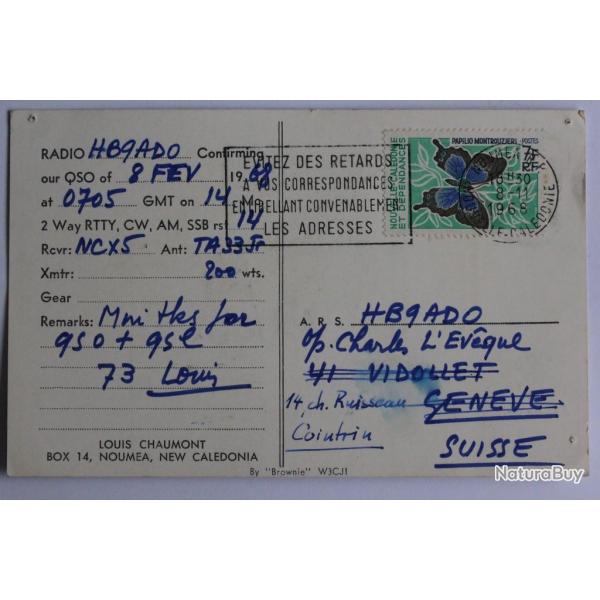 RADIO HB9ADO Confirming
our QSO of 8 FEV 1968
at 0705 GMT on 14 Mc
2 Way RTTY, CW, AM, SSB rst 14
Rcvr: NCX5 Ant: TA33Jr
Xmtr: 200 wts.
Gear
Remarks: Mni tks for
qso + qsl
73 Louis
LOUIS CHAUMONT
BOX 14, NOUMEA, NEW CALEDONIA
By "Brownie" W3CJI
EVITEZ DES RETARDS
A VOS CORRESPONDANCES
EN LIBELLANT CONVENABLEMENT
LES ADRESSES
PAPILIO MONTROUZIERI POSTES
NOUVELLE-CALEDONIE
ET DEPENDANCES
7F
RF
16H30
8-11
1968
Lle CALEDONIE
A. R. S. HB9ADO
o/p. Charles L'Evêque
41 VIDOLLET
14, ch. Ruisseau GENEVE
Cointrin
SUISSE
NaturaBuy